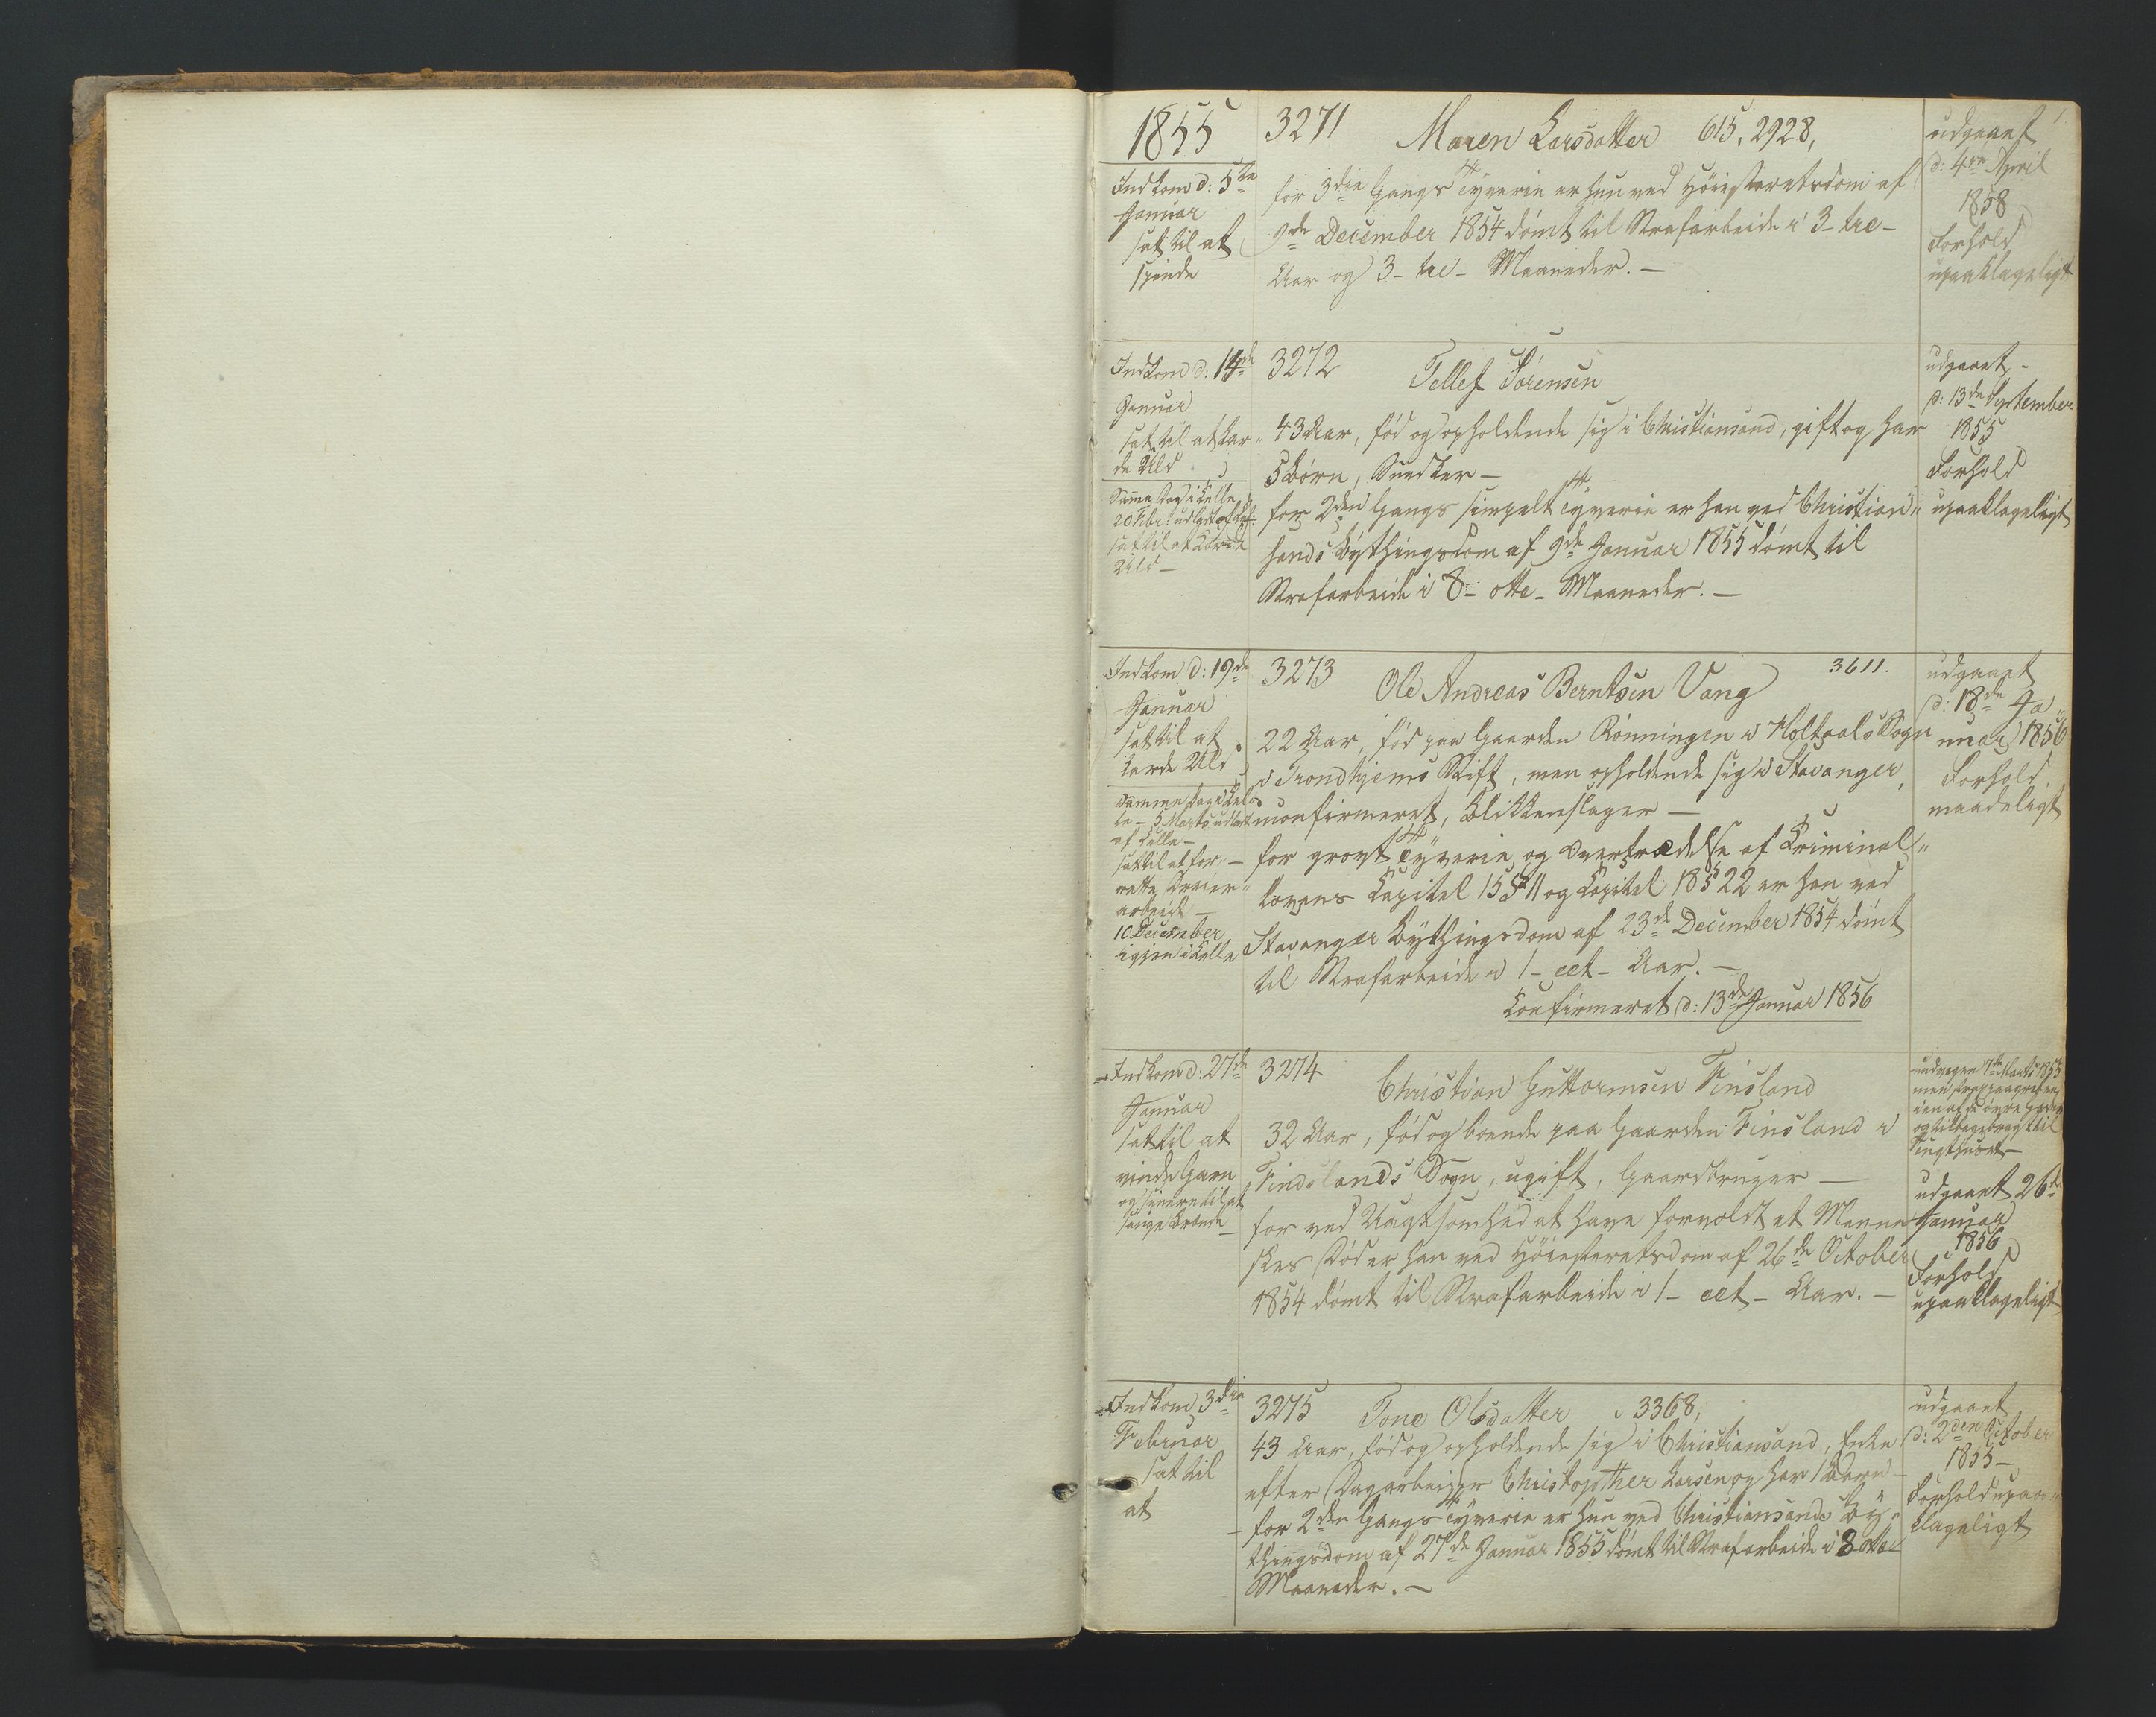 1855
Indkom d: 5te
Januar
sat til at
spinde
3271 Maren Larsdatter 615, 2928,
for 3die Gangs Tyverie er hun ved Høiesteretsdom af
9de December 1854 dømt til Strafarbeide i 3 - tre -
Aar og 3 - tre - Maaneder. -
udgaaet
d: 4de April
1858
Forhold
upaaklageligt
Indkom d: 14de
Januar
sat til at kar-
de Uld
Samme Dag i Celle
20 Febr: udladt af Celle
sat til at karde
Uld -
3272 Tellef Sørensen
43 Aar, fød og opholdende sig i Christiansand, gift og har
5 Børn, Snedker -
for 2den Gangs simpelt Tyverie er han ved Christian-
sands Bythingsdom af 9de Januar 1855 dømt til
Strafarbeide i 8 - otte - Maaneder. -
udgaaet -
d: 13de September
1855
Forhold
upaaklageligt
Indkom d: 19de
Januar
sat til at
karde Uld
Samme Dag i Cel-
le - 5 Marts udladt
af Celle -
sat til at for-
rette Dreier-
arbeide -
10 December
igjen i Celle
3273 Ole Andreas Berntsen Vang 3611.
22 Aar, fød paa Gaarden Rønningen i Holtaals Sogn
i Trondhjems Stift, men opholdende sig i Stavanger,
uconfirmeret, Blikkenslager -
for grovt Tyverie og Overtrædelse af Criminal-
lovens Capitel 15 § 11 og Capitel 18 § 22 er han ved
Stavanger Bythingsdom af 23de December 1854 dømt
til Strafarbeide i 1 - eet - Aar. -
Confirmeret d: 13de Januar 1856
udgaaet
d: 18de Ja-
nuar 1856
Forhold
maadeligt
Indkom d: 27de
Januar
sat til at
vinde Garn
og senere til at
sauge Brænde -
3274 Christian Guttormsen Finsland
32 Aar, fød og boende paa Gaarden Finsland i
Findslands Sogn, ugift, Gaardbruger -
for ved Uagtsomhed at have forvoldt et Menne-
skes Død er han ved Høiesteretsdom af 26de October
1854 dømt til Strafarbeide i 1 - eet - Aar. -
undvegen 7de Marts 1855
men strax paagreben
og tilbagebragt til
Tugthuset -
udgaaet 26de
Januar
1856
Forhold
upaaklageligt
Indkom 3die
Februar
sat til
at
3275 Tone Olsdatter 3368,
43 Aar, fød og opholdende sig i Christiansand, Enke
efter Dagarbeider Christopher Larsen og har 1 Barn -
for 2den Gangs Tyverie er hun ved Christiansands By-
thingsdom af 27de Januar 1855 dømt til Strafarbeide i 8 otte
Maaneder. -
udgaaet
d: 2den October
1855 -
Forhold upaa-
klageligt